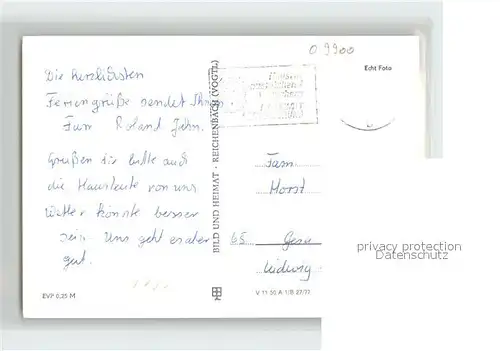 09900
Echt Foto
Die herzlichsten
Feriengrüße sendet Ihnen
Fam. Roland Jahn.
Grüßen Sie bitte auch
die Hausleute von uns
Wetter könnte besser
sein. Uns geht es aber
gut.
BILD UND HEIMAT · REICHENBACH (VOGTL)
Fam.
Horst
65 Gera
Ludwig-
privacy protection
Datenschutz
EVP 0,25 M
V 11 50 A 1/B 27/77